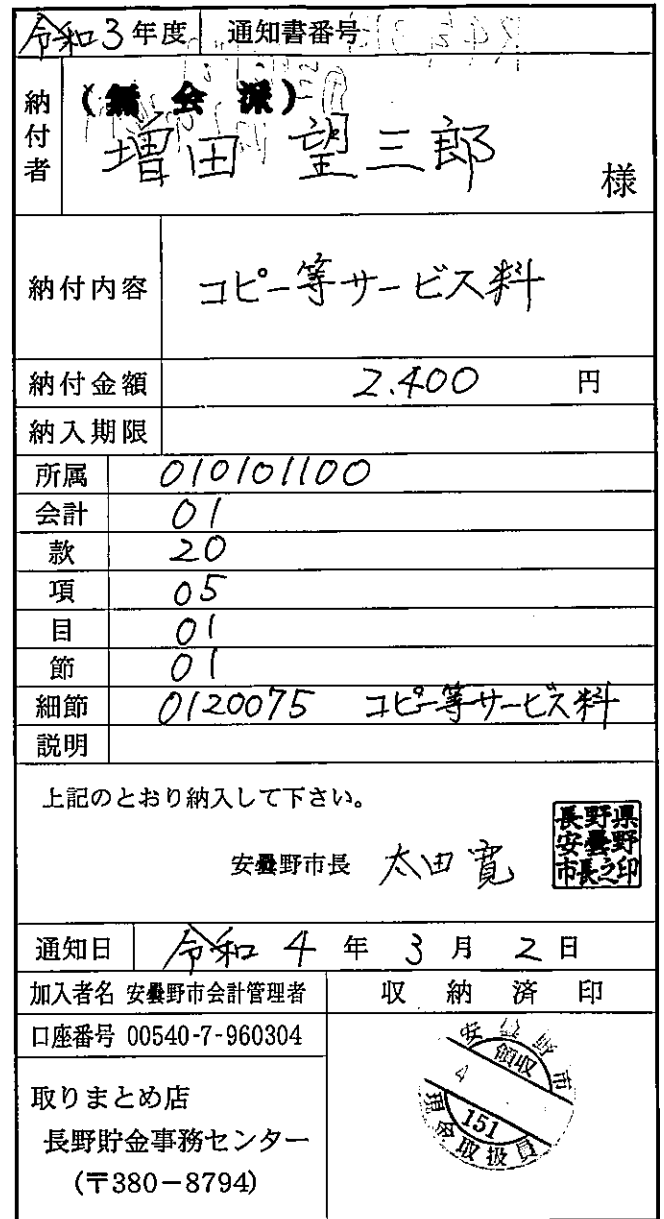 令和3年度 通知書番号
納付者 (無会派)
増田 望三郎 様
納付内容 コピー等サービス料
納付金額 2.400 円
納入期限
所属 010101100
会計 01
款 20
項 05
目 01
節 01
細節 0120075 コピー等サービス料
説明
上記のとおり納入して下さい。
安曇野市長 太田寛
長野県安曇野市長之印
通知日 令和 4 年 3 月 2 日
加入者名 安曇野市会計管理者 収納済印
口座番号 00540-7-960304
安曇野市
領収
4
151
現金取扱員
取りまとめ店
長野貯金事務センター
(〒380-8794)